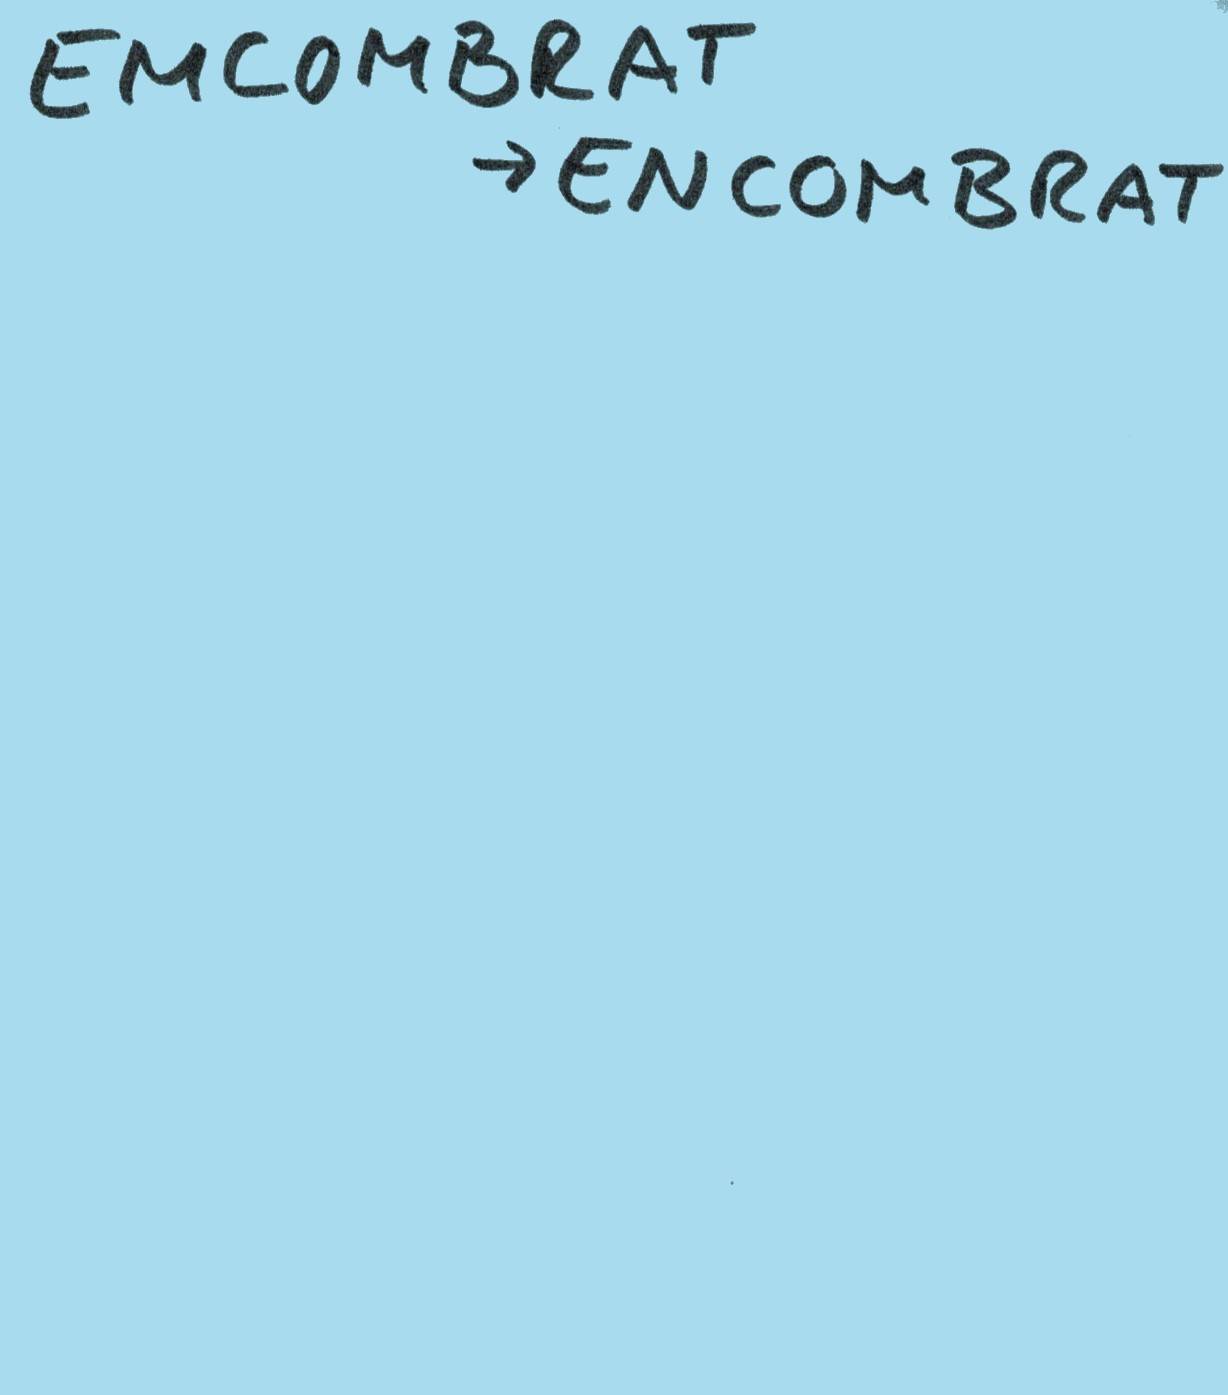 EMCOMBRAT
→ ENCOMBRAT